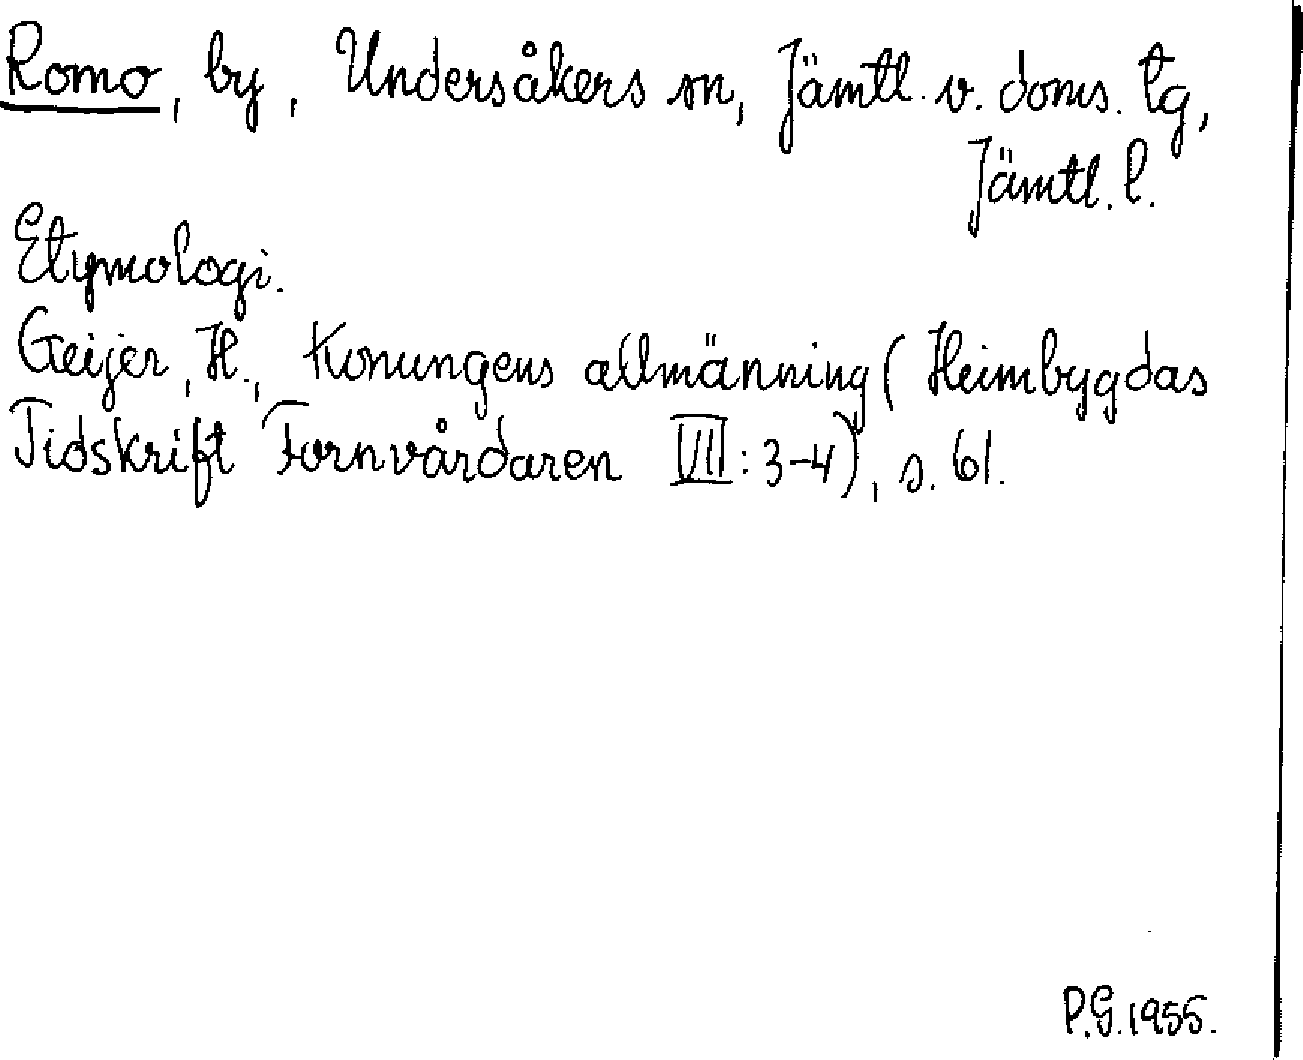 Romo, by, Undersåkers sn, Jämtl. v. doms. tg,
Jämtl. l.
Etymologi.
Geijer, H., Konungens allmänning (Heimbygdas
Tidskrift Fornvårdaren VII: 3-4), s. 61.
P.G. 1955.